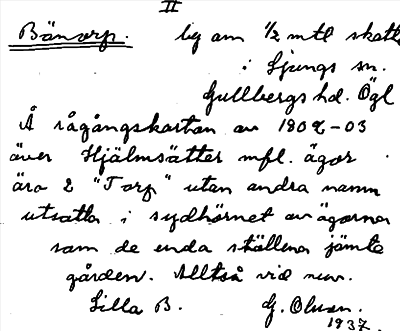 II
Bänorp. lig om 1/2 mtl skatte
i Ljungs sn.
Gullbergs hd. Ögl
Å rågångskartan av 1802-03
över Hjälmsätter mfl. ägor
äro 2 "Torp" utan andra namn
utsatta i sydhörnet av ägorna
som de enda ställena jämte
gården. Alltså vid nuv.
Lilla B. G. Olsson.
1937.